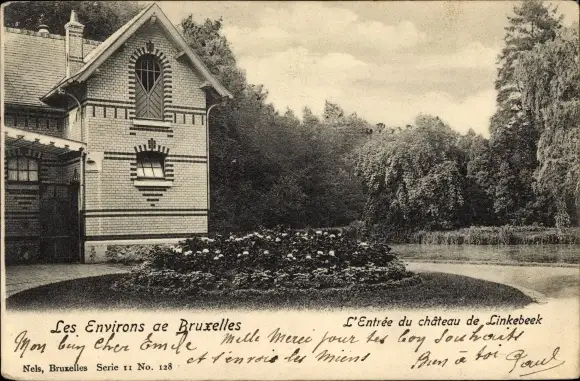 Les Environs de Bruxelles
L'Entrée du château de Linkebeek
Mon Guy Cher Emile Mille Merci pour tes Bon Souhaits
et t'envois les Miens
Bien à toi Paul
Nels, Bruxelles Serie 11 No. 128